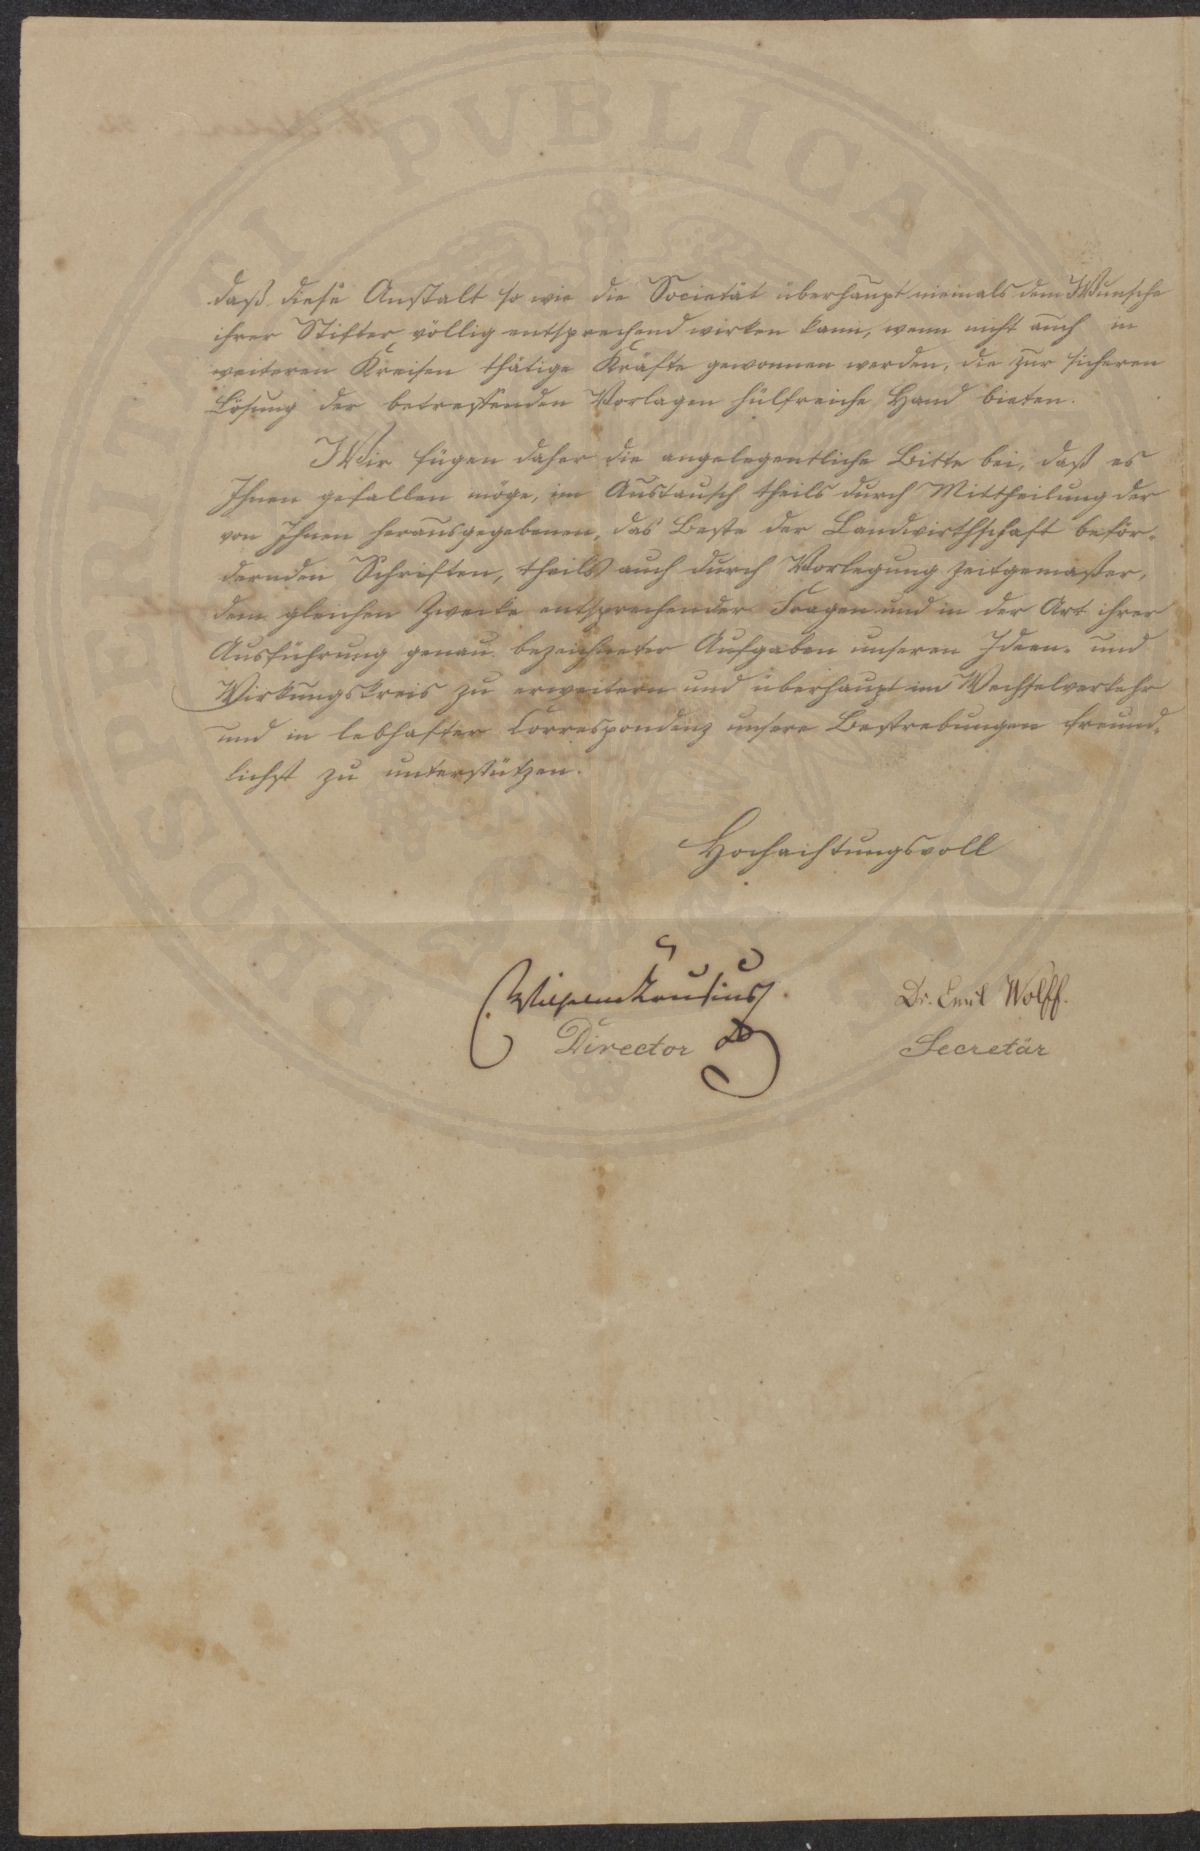 daß diese Anstalt so wie die Societät überhaupt niemals dem Wunsche
ihrer Stifter völlig entsprechend wirken kann, wenn nicht auch in
weiteren Kreisen thätige Kräfte gewonnen werden, die zur sicheren
Lösung der betreffenden Vorlagen hülfreiche Hand bieten.
Wir fügen daher die angelegentliche Bitte bei, daß es
Ihnen gefallen möge, im Austausch theils durch Mittheilung der
von Ihnen herausgegebenen, das Beste der Landwirthschaft beför-
dernden Schriften, theils auch durch Vorlegung zeitgemaßer,
dem gleichen Zwecke entsprechender Fragen und in der Art ihrer
Ausführung genau bezeichneter Aufgaben unseren Ideen- und
Wirkungskreis zu erweitern und überhaupt im Wechselverkehr
und in lebhafter Correspondenz unsere Bestrebungen freund-
lichst zu unterstützen.
Hochachtungsvoll
Wilhelm Crusius. Dr. Emil Wolff.
Director Secretär